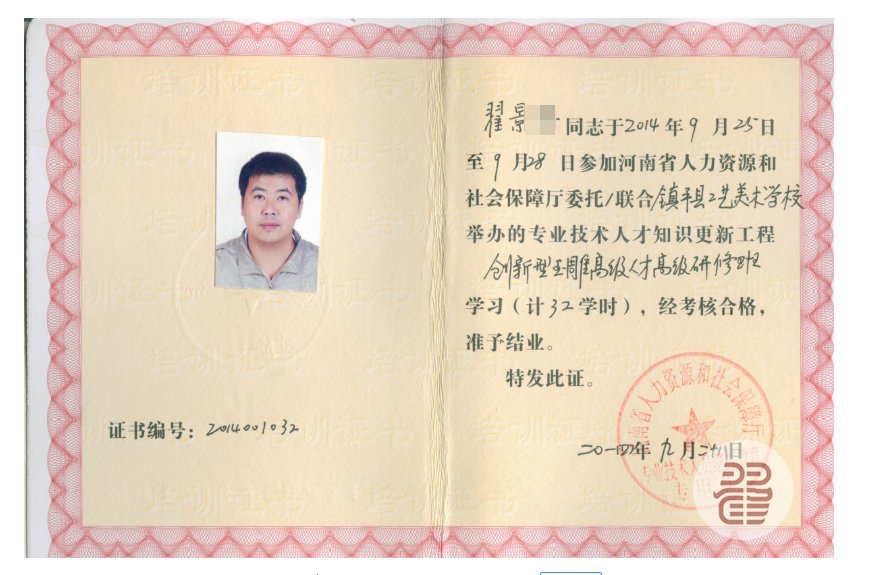 证书编号：2014001032
翟景 同志于2014年9月25日
至9月28日参加河南省人力资源和
社会保障厅委托/联合镇平县工艺美术学校
举办的专业技术人才知识更新工程
创新型玉雕高级人才高级研修班
学习（计32学时），经考核合格，
准予结业。
特发此证。
二〇一四年九月二十八日
河南省人力资源和社会保障厅
培训证书